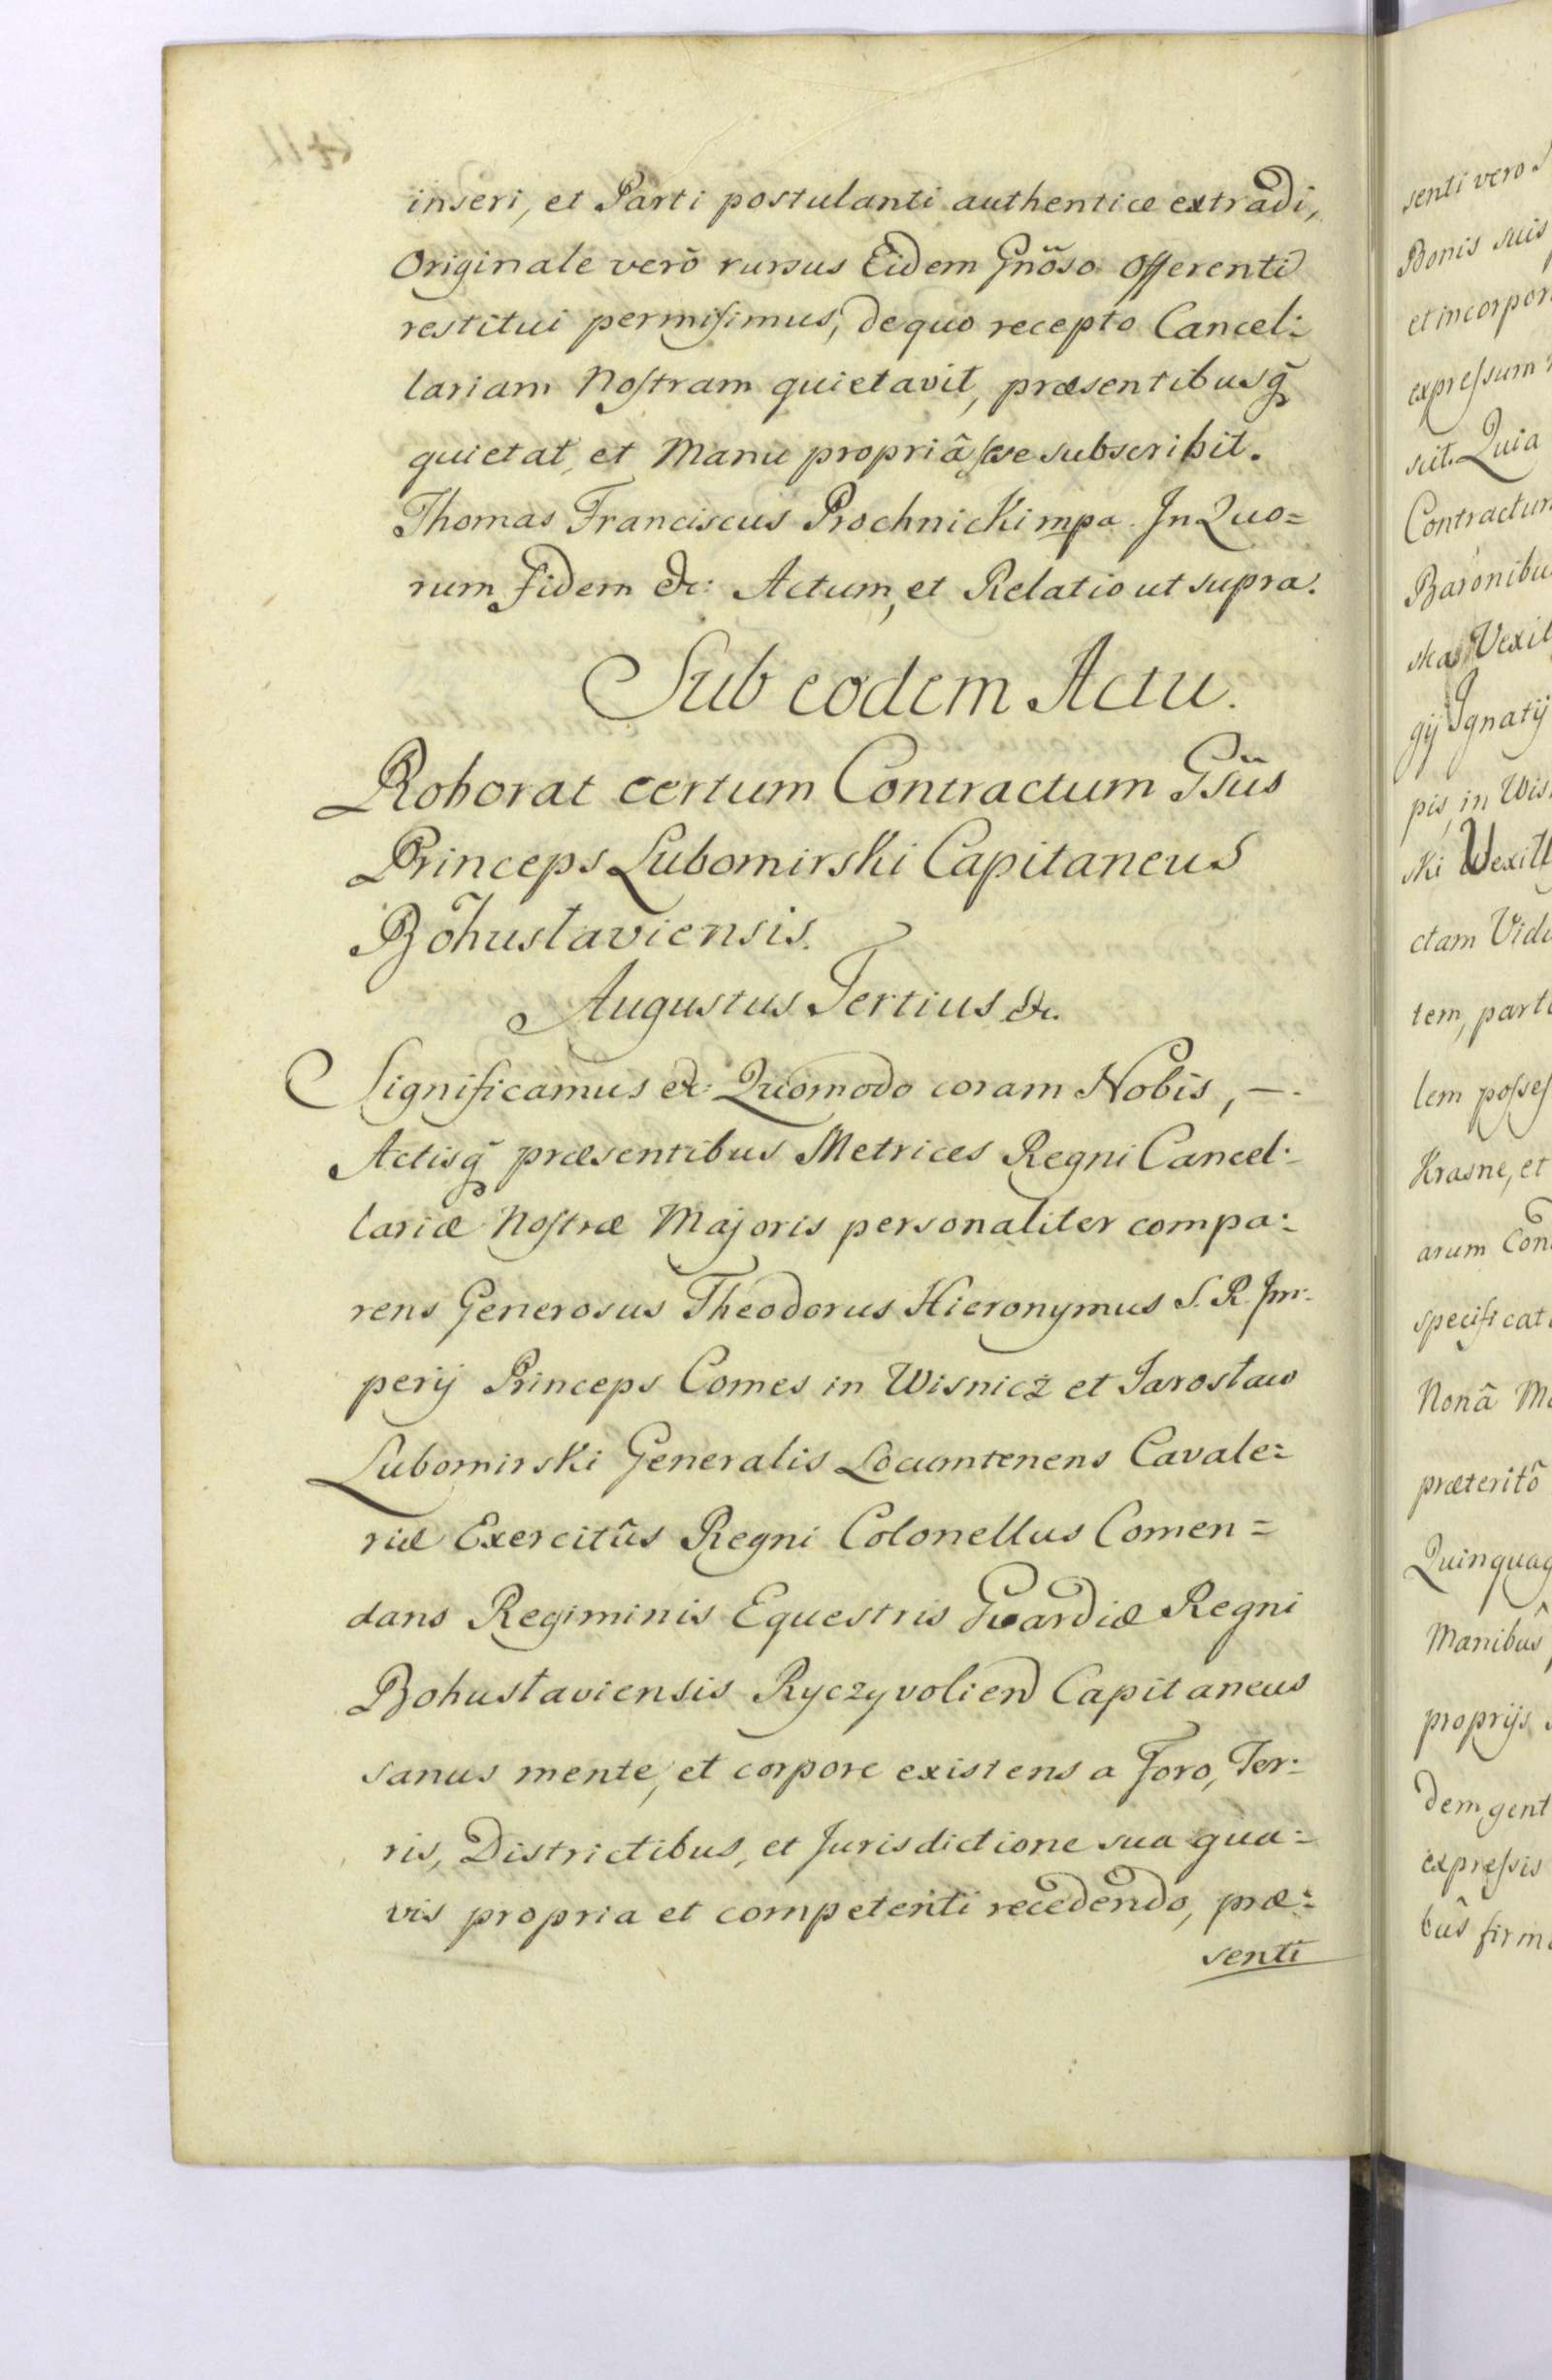 inseri, et Parti postulanti authentice extradi,
Originale verò rursus Eidem Gnõso Offerenti
restitui permisimus, de quo recepto Cancel:
lariam Nostram quietavit, præsentibusq̃
quietat, et Manu propriâ se subscribit.
Thomas Franciscus Prochnicki mpa. In Quo=
rum fidem &c: Actum, et Relatio ut supra.
Sub eodem Actu.
Roborat certum Contractum Gsũs
Princeps Lubomirski Capitaneus
Bohuslaviensis.
Augustus Tertius &c.
Significamus &c: Quomodo coram Nobis, —.
Actisq̃ præsentibus Metrices Regni Cancel:
lariæ Nostræ Majoris personaliter compa:
rens Generosus Theodorus Hieronymus S. R. Im:
perij Princeps Comes in Wisnicz et Jarosław
Lubomirski Generalis Locumtenens Cavale:
riæ Exercitûs Regni Colonellus Comen=
dans Regiminis Equestris Guardiæ Regni
Bohuslaviensis Ryczyvolien Capitaneus
sanus mente, et corpore existens a Foro, Ter:
ris, Districtibus, et Jurisdictione sua qua:
vis propria et competenti recedendo, præ:
senti
senti vero
Bonis suis
et incorpor
expressum
scit. Quia
Contractum
Baronibu
ska Vexil
gij Ignatij
pis, in Wis
ski Vexill
ctam Vidu
tem, parte
lem posses
Krasne, et
arum Con
specificat
Nonâ Ma
præteritô
Quinquag
Manibus
proprijs
dem gent
expressis
bûs firm